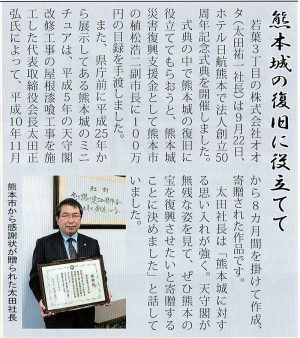 熊本城の復旧に役立てて
若葉３丁目の株式会社オオ
タ（太田祐一社長）は９月22日、
ホテル日航熊本で法人創立50
周年記念式典を開催しました。
式典の中で熊本城の復旧に
役立ててもらおうと、熊本城
災害復興支援金として熊本市
の植松浩二副市長に１００万
円の目録を手渡しました。
また、県庁前に平成25年か
ら展示してある熊本城のミニ
チュアは、平成５年の天守閣
改修工事の屋根漆喰工事を施
工した代表取締役会長太田正
弘氏によって、平成10年11月
から８カ月間を掛けて作成、
寄贈された作品です。
太田社長は「熊本城に対す
る思い入れが強く、天守閣が
無残な姿を見て、ぜひ熊本の
宝を復興させたいと寄贈する
ことに決めました」と話して
いました。
熊本市から感謝状が贈られた太田社長